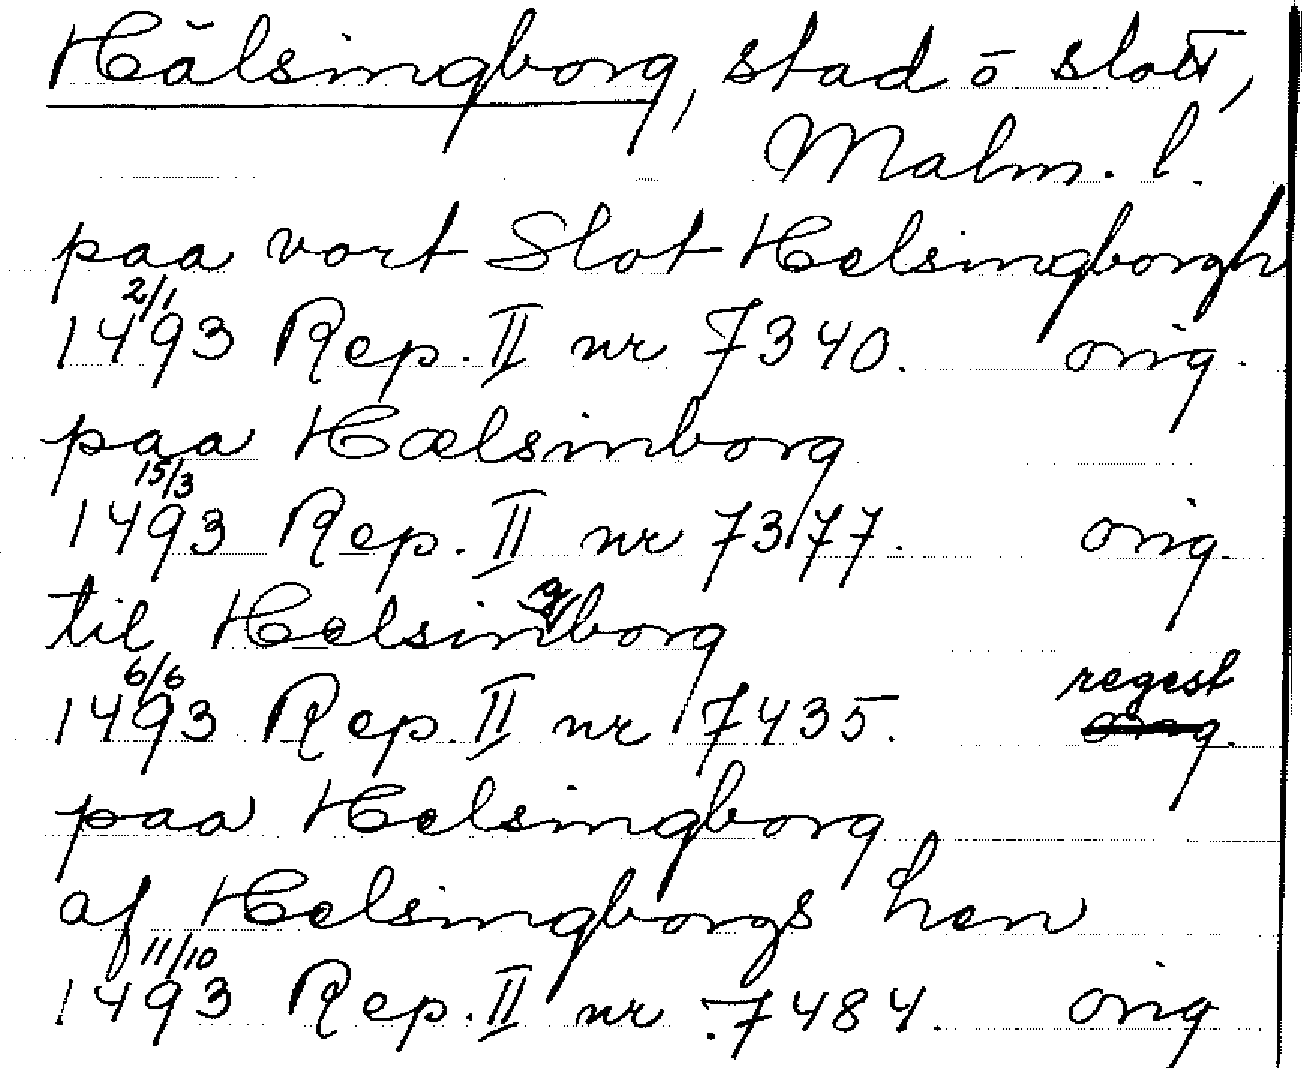 Hälsingborg, stad o slott,
Malm. l.
paa vort Slot Helsingborgh
2/1
1493 Rep. II nr 7340. orig.
paa Hælsinborg
15/3
1493 Rep. II nr 7377. orig.
til Helsingborg
6/6 regest
1493 Rep. II nr 7435. orig.
paa Helsingborg
af Helsingborgs hen
11/10
1493 Rep. II nr 7484. orig